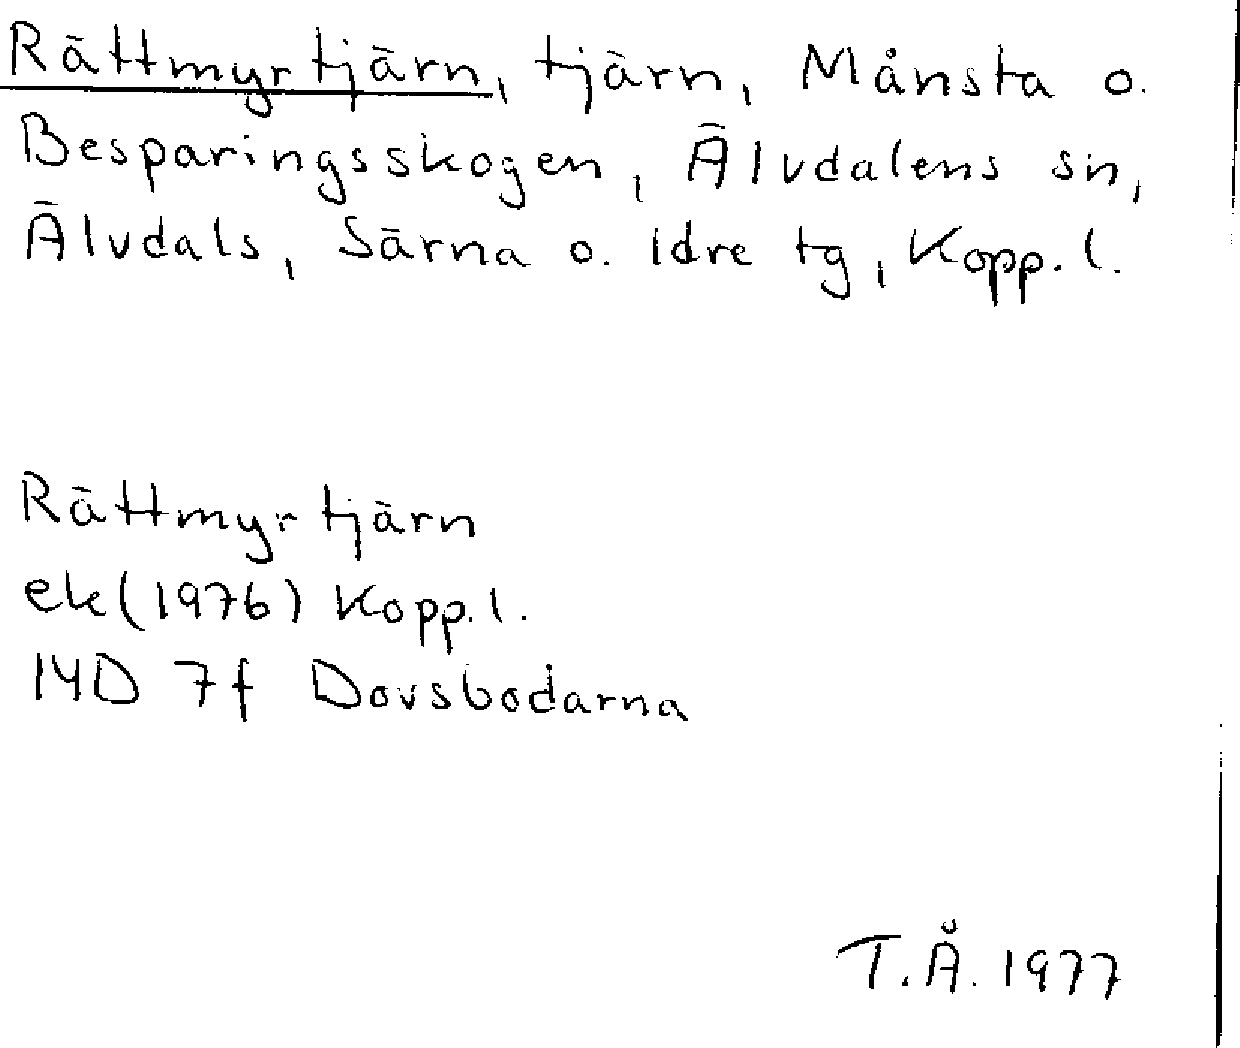 Rättmyrtjärn, tjärn, Månsta o.
Besparingsskogen, Älvdalens sn,
Älvdals, Särna o. Idre tg, Kopp. l.
Rättmyrtjärn
ek (1976) Kopp. l.
14D 7f Dovsbodarna
T.Å. 1977